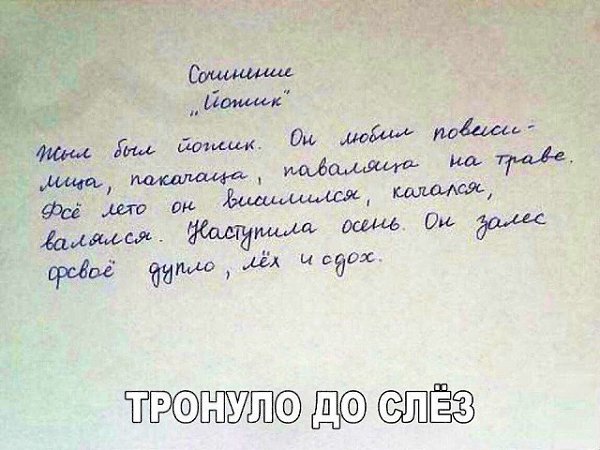 Сочинение
„Йожик"
Жыл был йожик. Он любил повеси-
лица, пакачаца, паваляца на траве.
Фсё лето он висилился, качался,
валялся. Наступила осень. Он залес
фсвоё дупло, лёх и сдох.
ТРОНУЛО ДО СЛЁЗ